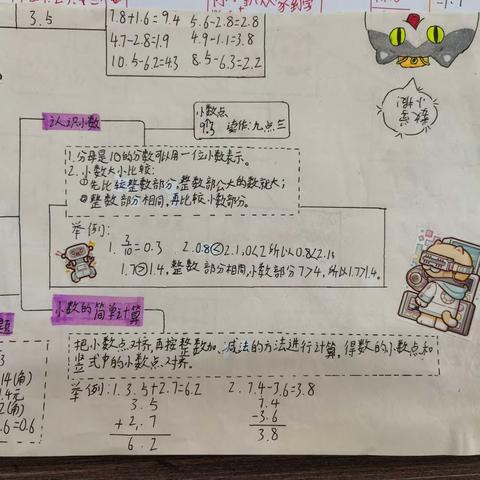 3.5
7.8+1.6=9.4 5.6-2.8=2.8
4.7-2.8=1.9 4.9-1.1=3.8
10.5-6.2=4.3 8.5-6.3=2.2
数学
小报!
小数点
9.3 读作:九点三
认识小数
1.分母是10的分数可以用一位小数表示。
2.小数大小比较:
①先比较整数部分,整数部分大的数就大;
②整数部分相同,再比较小数部分。
举例:
1. 3/10=0.3 2.0.8<2.1,0<2所以0.8<2.1。
1.7>1.4,整数部分相同,小数部分7>4,所以1.7>1.4。
小数的简单计算
把小数点对齐,再按整数加、减法的方法进行计算,得数的小数点和
竖式中的小数点对齐。
举例:1.3.5+2.7=6.2 2.7.4-3.6=3.8
3.5 7.4
+2.7 -3.6
6.2 3.8
题
3
14(角)
4元
2(角)
.6=0.6